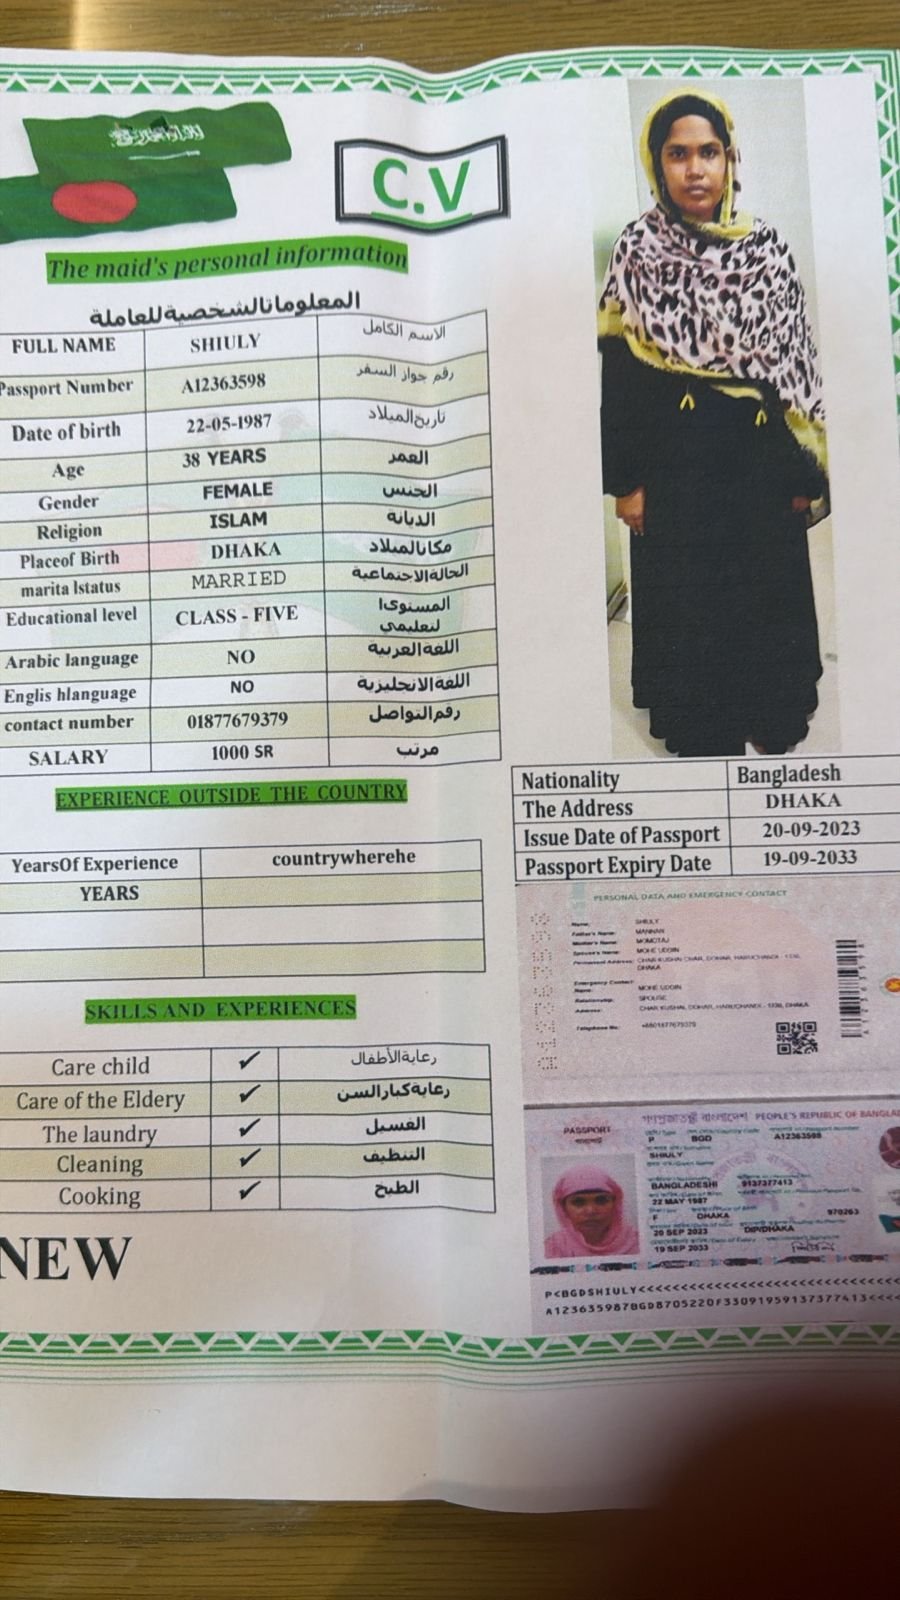 C.V
The maid's personal information
المعلوماتالشخصيةللعاملة
FULL NAME SHIULY الاسم الكامل
Passport Number A12363598 رقم جواز السفر
Date of birth 22-05-1987 تاريخالميلاد
Age 38 YEARS العمر
Gender FEMALE الجنس
Religion ISLAM الديانة
Placeof Birth DHAKA مكانالميلاد
marita lstatus MARRIED الحالةالاجتماعية
Educational level CLASS - FIVE المستوىا
لتعليمي
Arabic language NO اللغةالعربية
Englis hlanguage NO اللغةالانجليزية
contact number 01877679379 رقمالتواصل
SALARY 1000 SR مرتب
EXPERIENCE OUTSIDE THE COUNTRY
YearsOf Experience countrywherehe
YEARS
SKILLS AND EXPERIENCES
Care child ✓ رعايةالأطفال
Care of the Eldery ✓ رعايةكبارالسن
The laundry ✓ الغسيل
Cleaning ✓ التنظيف
Cooking ✓ الطبخ
NEW
Nationality Bangladesh
The Address DHAKA
Issue Date of Passport 20-09-2023
Passport Expiry Date 19-09-2033
PERSONAL DATA AND EMERGENCY CONTACT
Name: SHIULY
Father's Name: MANNAN
Mother's Name: MOMOTAJ
Spouse's Name: MOHE UDDIN
Permanent Address: CHAR KUSHAI CHAR, DOHAR, HARUCHANDI - 1330,
DHAKA
Emergency Contact
Name: MOHE UDDIN
Relationship: SPOUSE
Address: CHAR KUSHAI, DOHAR, HARUCHANDI - 1330, DHAKA
Telephone No: +8801877679379
গণপ্রজাতন্ত্রী বাংলাদেশ PEOPLE'S REPUBLIC OF BANGLA
PASSPORT
P BGD A12363598
SHIULY
BANGLADESHI 9137377413
22 MAY 1987
F DHAKA 970263
20 SEP 2023 DIP/DHAKA
19 SEP 2033
P<BGDSHIULY<<<<<<<<<<<<<<<<<<<<<<<<<<
A123635987BGD8705220F33091959137377413<<<<